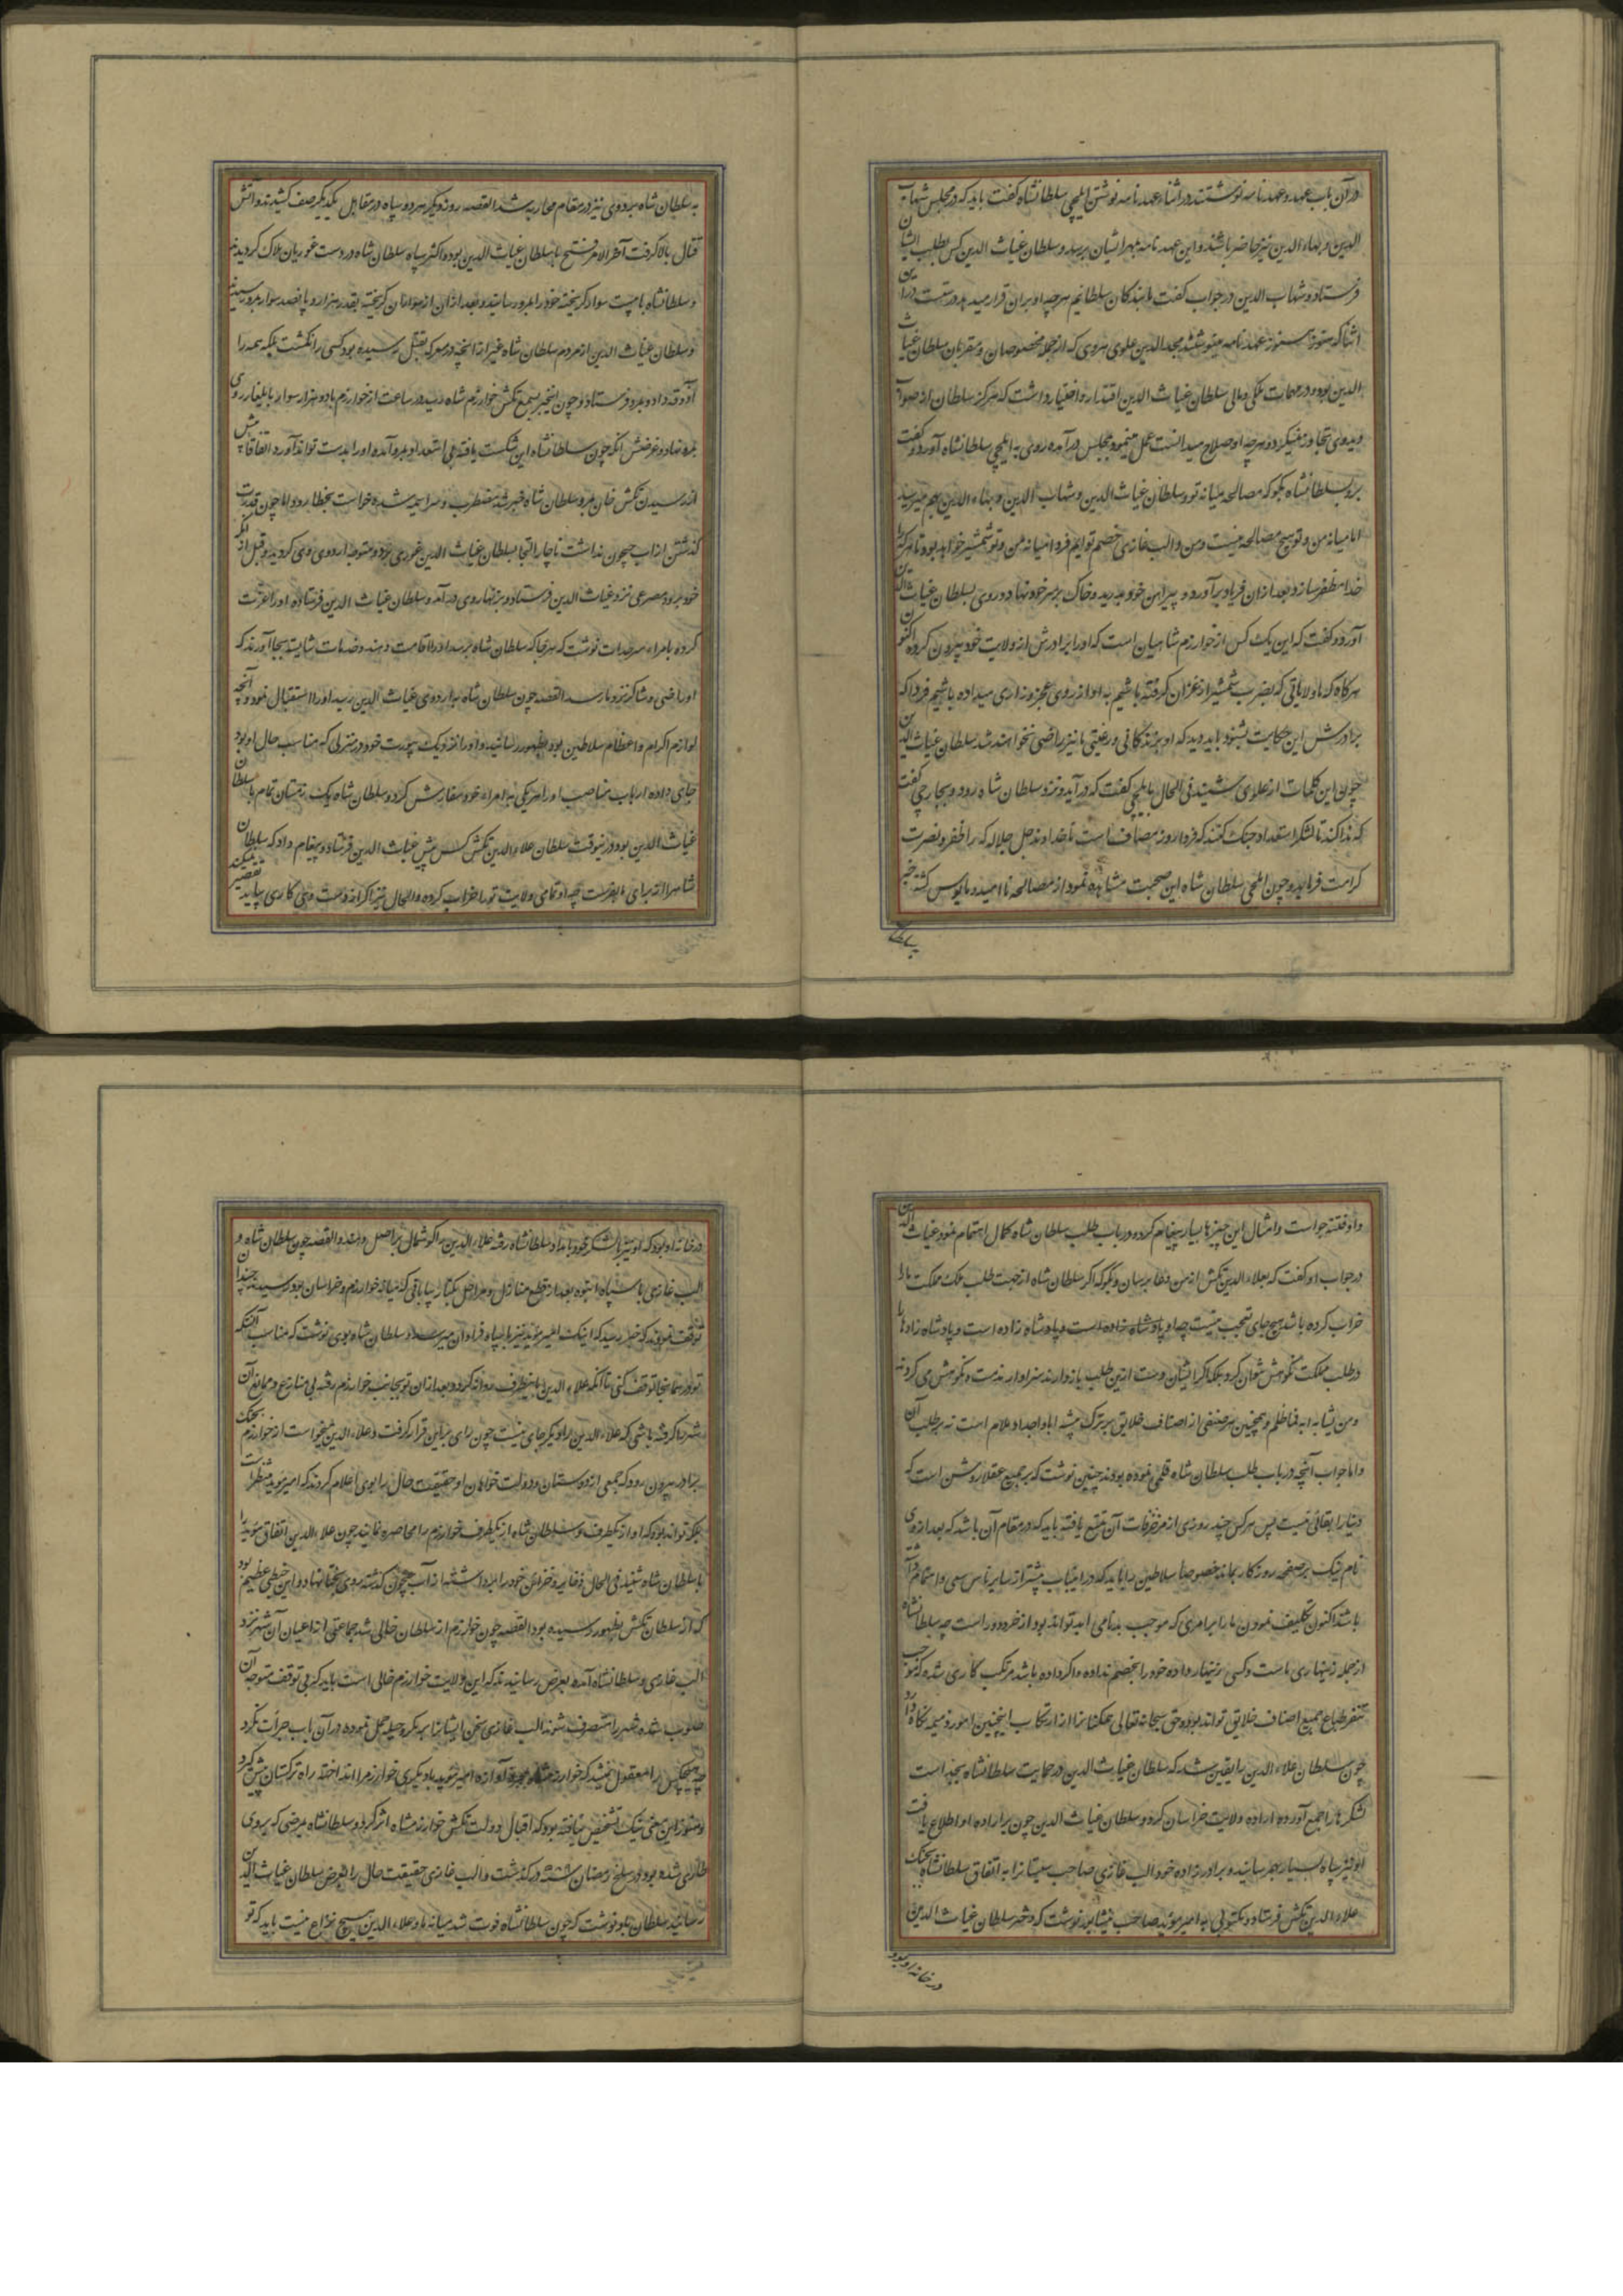 در آن باب عهد و عهدنامه نوشتند در اثناء عهدنامه نوشتن ایلچی سلطانشاه کفت باید که در مجلس شهاب
الدین و بهاء الدین نیز حاضر باشند و این عهدنامه بمهر ایشان برسد و سلطان غیاث الدین کس بطلب ایشان
فرستاد و شهاب الدین در جواب کفت ما بندکان سلطانیم هرچه او بران قرار میدهد درست در این
اثنا که هنوز عهدنامه می نوشتند مجد الدین علوی هروی که از جمله مخصوصان و مقربان سلطان غیاث
الدین بود و در مهمات ملکی و مالی سلطان غیاث الدین اقتدار و اختیار داشت که هرکز سلطان از صواب
دید وی تجاوز نمیکرد و هرچه او صلاح میدانست عمل مینمود بمجلس درآمده روی به ایلچی سلطانشاه آورد و کفت
برو بسلطانشاه بکو که مصالحه میانه تو و سلطان غیاث الدین و شهاب الدین و بهاء الدین بهم میرسد
اما میانه من و تو هیچ مصالحه نیست و من و الب غازی خصم توایم فردا میانه من و تو شمشیر خواهد بود تا هر که را
خدا مظفر سازد و بعد ازان فریاد برآورد و پیراهن خود بدرید و خاک بر سر خود نهاد و روی بسلطان غیاث الدین
آورد و کفت که این یک کس از خوارزم شاهیان است که او را برادرش از ولایت خود بیرون کرده اکنون
هرکاه که ما ولایاتی که بضرب شمشیر از غزان کرفته باشیم به او از روی عجز و زاری میداده باشیم فردا که
برادرش این حکایت بشنود باید دید که او بزندکانی و رعیتی ما نیز راضی نخواهند شد سلطان غیاث الدین
چون این کلمات از علوی شنید فی الحال بایلچی کفت که درآید و نزد سلطان شاه رود و بجارچی کفت
که ندا کند تا لشکر استعداد جنک کنند که فردا روز مصاف است تا خداوند جل جلاله که را ظفر و نصرت
کرامت فرماید و چون ایلچی سلطان شاه این صحبت مشاهده نمود از مصالحه ناامید و مایوس کشته خبر
بسلطان
به سلطان شاه برد و وی نیز در مقام محاربه شد القصه روز دیکر هر دو سپاه در مقابل یکدیکر صف کشیدند و آتش
قتال بالا کرفت آخر الامر فتح با سلطان غیاث الدین بود و اکثر سپاه سلطان شاه در دست غوریان هلاک کردیدند
و سلطانشاه با بیست سوار کریخته خود را بمرو رسانید و بعد ازان از سواران کریخته بقدر هزار و پانصد سوار بمرو رسیدند
و سلطان غیاث الدین از مردم سلطان شاه غیر از انچه در معرکه بقتل رسیده بود کسی را نکشت بلکه همه را
آذوقه داد و بمرو فرستاد و چون اینخبر بسمع تکش خوارزم شاه رسید در ساعت از خوارزم با دو هزار سوار بایلغار روی
براه نهاد و غرضش انکه چون سلطانشاه این شکست یافته بی استعداد بمرو آمده او را بدست تواند آورد اتفاقا پیش
از رسیدن تکش خان بمرو سلطان شاه خبر شد مضطرب و سراسیمه شده خواست بخطا رود اما چون قدرت
کذشتن از اب جیحون نداشت ناچار التجا بسلطان غیاث الدین غوری برد و متوجه اردوی وی کردید و قبل از انکه
خود برود مسرعی نزد غیاث الدین فرستاد و بزنهار وی درآمد و سلطان غیاث الدین فرستاده او را عزت
کرده بامراء سرحدات نوشت که هرجا که سلطان شاه برسد او را اقامت دهند و خدمات شایسته بجا آورند که
او راضی و شاکر نزد ما رسد القصه چون سلطان شاه به اردوی غیاث الدین رسید او را استقبال نمود و آنچه
لوازم اکرام و اعظام سلاطین بود بظهور رسانید و او را نزدیک بیورت خود در منزلی که مناسب حال او بود
جای داده ارباب مناصب او را هریکی به امراء خود سفارش کرد و سلطان شاه یک زمستان تمام با سلطان
غیاث الدین بود درینوقت سلطان علاء الدین تکش کس پیش غیاث الدین فرستاد و پیغام داد که سلطان
شاه را از برای ما بفرست چه او تمامی ولایت تو را خراب کرده و الحال نیز اکر از دست وی کاری بیاید تقصیر نمیکند
و او فتنه جو است و امثال این چیزها بسیار پیغام کرده در باب طلب سلطان شاه کمال اهتمام نمود غیاث الدین
در جواب او کفت که بعلاء الدین تکش از من دعا برسان و بکو که اکر سلطان شاه از جهت طلب ملک مملکت ما را
خراب کرده باشد هیچ جای تعجب نیست چه او پادشاه زاده است و پادشاه زادها را
در طلب مملکت نکوهش نتوان کرد بلکه اکر ایشان دست ازین طلب بازدارند سزاوار مذمت و نکوهش می کردند
و من یشابه ابه فما ظلم و همچنین هر صنفی از اصناف خلایق بر ترک پیشه ابا و اجداد ملام است نه بر طلب آن
و اما جواب آنچه در باب طلب سلطان شاه قلمی نموده بودند چنین نوشت که بر جمیع عقلا روشن است که
دنیا را بقائی نیست پس هرکس چند روزی از مزخرفات آن تمتع یافته باید که در مقام آن باشد که بعد از وی
نام نیک بر صفحه روزکار بماند خصوصا سلاطین را باید که درین باب بیشتر از سایر ناس سعی و اهتمام داشته
باشند اکنون تکلیف نمودن ما را بر امری که موجب بدنامی ابد تواند بود از خرد دور است چه سلطانشاه
از جمله زینهاری ماست و کسی زینهار داده خود را بخصم نداده و اکر داده باشد مرتکب کاری شده که موجب
تنفر طباع جمیع اصناف خلایق تواند بود و حق سبحانه تعالی همکنانرا از ارتکاب اینچنین امور ذمیمه نکاه دارد
چون سلطان علاء الدین را یقین شد که سلطان غیاث الدین در حمایت سلطانشاه بجد است
لشکرها را جمع آورده اراده ولایت خراسان کرد و سلطان غیاث الدین چون بر اراده او اطلاع یافت
او نیز سپاه بسیار بهم رسانید و برادرزاده خود الب غازی صاحب سیستانرا به اتفاق سلطانشاه بجنک
علاء الدین تکش فرستاد و مکتوبی به امیر موید صاحب نیشابور نوشت که دختر سلطان غیاث الدین
در خانه او بود
در خانه او بود که او نیز با لشکر خود بامداد سلطانشاه رفته علاء الدین را کوشمال بر اصل دهند و القصه چون سلطان شاه و
الب غازی با سپاه انبوه بعد از قطع منازل و مراحل بکنار بیابانی که میانه خوارزم و خراسان بود رسیدند چندان
توقف نمودند که خبر رسید که اینک امیر موید نیز با سپاه فراوان میرسد و سلطان شاه بوی نوشت که مناسب آنستکه
تو در همانجا توقف کنی تا آنکه علاء الدین باینطرف روانه کردد و بعد ازان تو بجانب خوارزم رفته بی منازع و ممانع آن
شهر را کرفته باشی که علاء الدین را دیکر جای نیست چون رای براین قرار کرفت و علاء الدین میخواست از خوارزم بجنک
برادر بیرون رود که جمعی از دوستان و دولت خواهان او حقیقت حال را بوی اعلام کردند که امیر موید منتظر است
بلکه تواند بود که او از یکطرف و سلطان شاه از یکطرف خوارزم را محاصره نمایند چون علاء الدین اتفاق موید را
با سلطان شاه شنید فی الحال ذخایر و خزائن خود را برداشته از آب جیحون کذشته روی بختا نهاد و این خبطی عظیم بود
که از سلطان تکش بظهور رسیده بود القصه چون خوارزم از سلطان خالی شد جماعتی از اعیان آن شهر نزد
الب غازی و سلطانشاه آمده بعرض رسانیدند که این ولایت خوارزم خالی است باید که بی توقف متوجه آن
صوب شده شهر را متصرف شوند الب غازی سخن ایشانرا بر مکر و حیله حمل نموده در آن باب جرأت نکرد
چه هیچکس را معقول نمیشد که خوارزمشاه بمجرد آوازه امیر موید با دیکری خوارزم را انداخته راه ترکستان پیش کیرد
و هنوز این معنی نیک تشخیص نیافته بود که اقبال دولت تکش خوارزمشاه اثر کرد و سلطانشاه مرضی که بر وی
طاری شده بود در سلخ رمضان درکذشت و الب غازی حقیقت حال را بعرض سلطان غیاث الدین
رسانید سلطان باو نوشت که چون سلطانشاه فوت شد میانه ما و علاء الدین هیچ نزاع نیست باید که تو